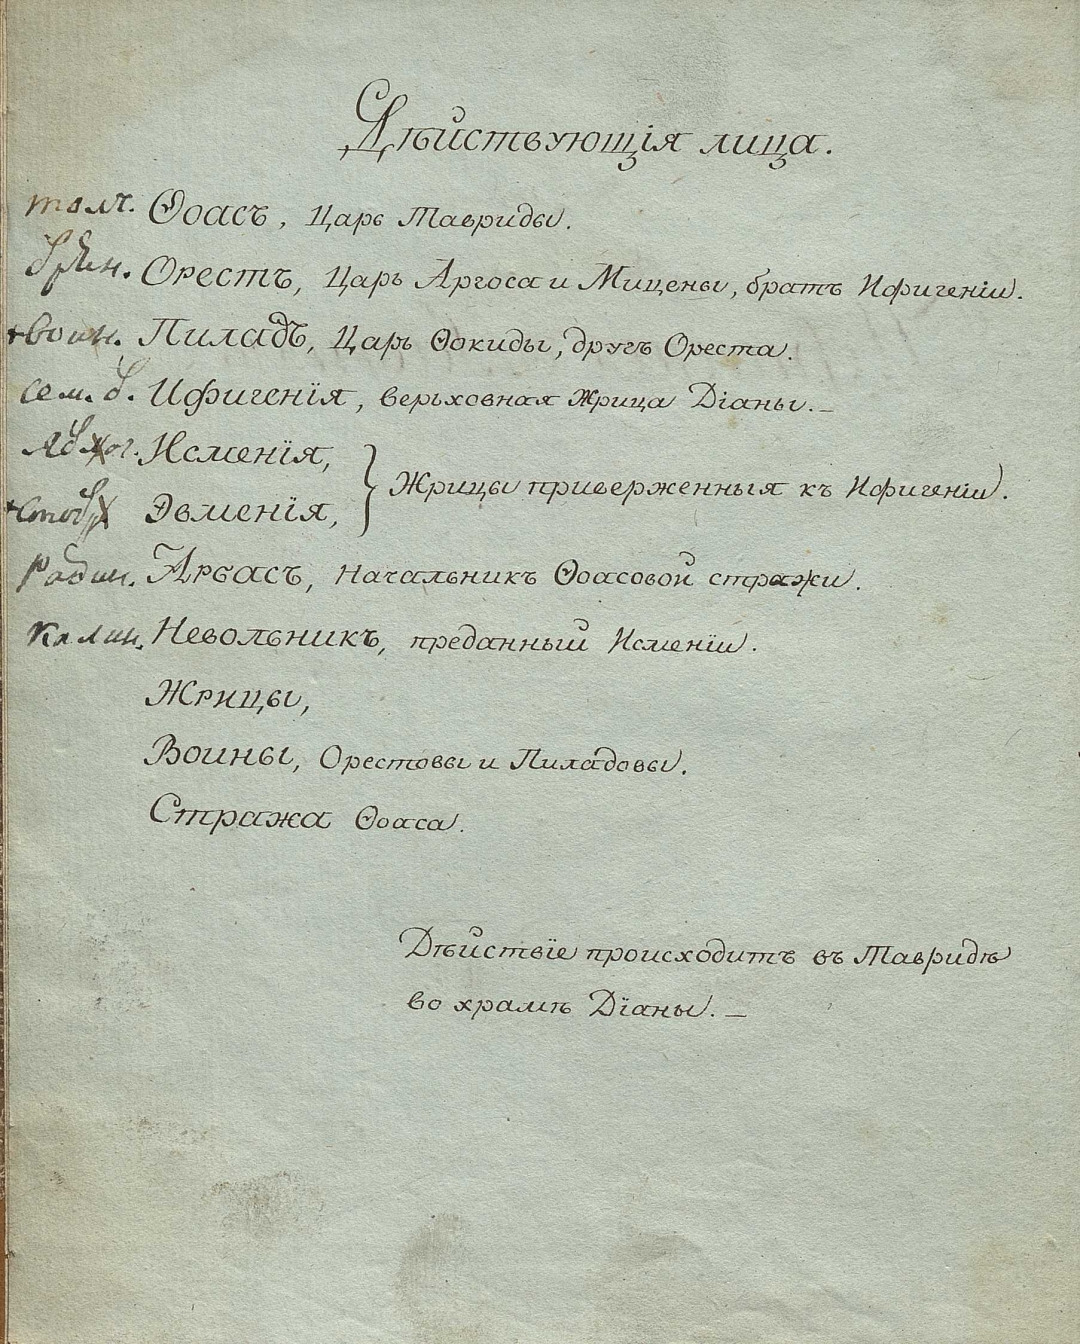 Дѣйствующія лица.
толч. Ѳоасъ, Царь Тавриды.
брян. Орестъ, Царь Аргоса и Мицены, братъ Ифигеніи.
+ воин. Пиладъ, Царь Ѳокиды, другъ Ореста.
сем. б. Ифигенія, верьховная Жрица Діаны.
Исменія,
Жрицы приверженныя къ Ифигеніи.
Эвменія,
радин. Арбасъ, Начальникъ Ѳоасовой стражи.
калин. Невольникъ, преданный Исменіи.
Жрицы,
Воины, Орестовы и Пиладовы.
Стража Ѳоаса.
Дѣйствіе происходитъ въ Тавридѣ
во храмѣ Діаны.